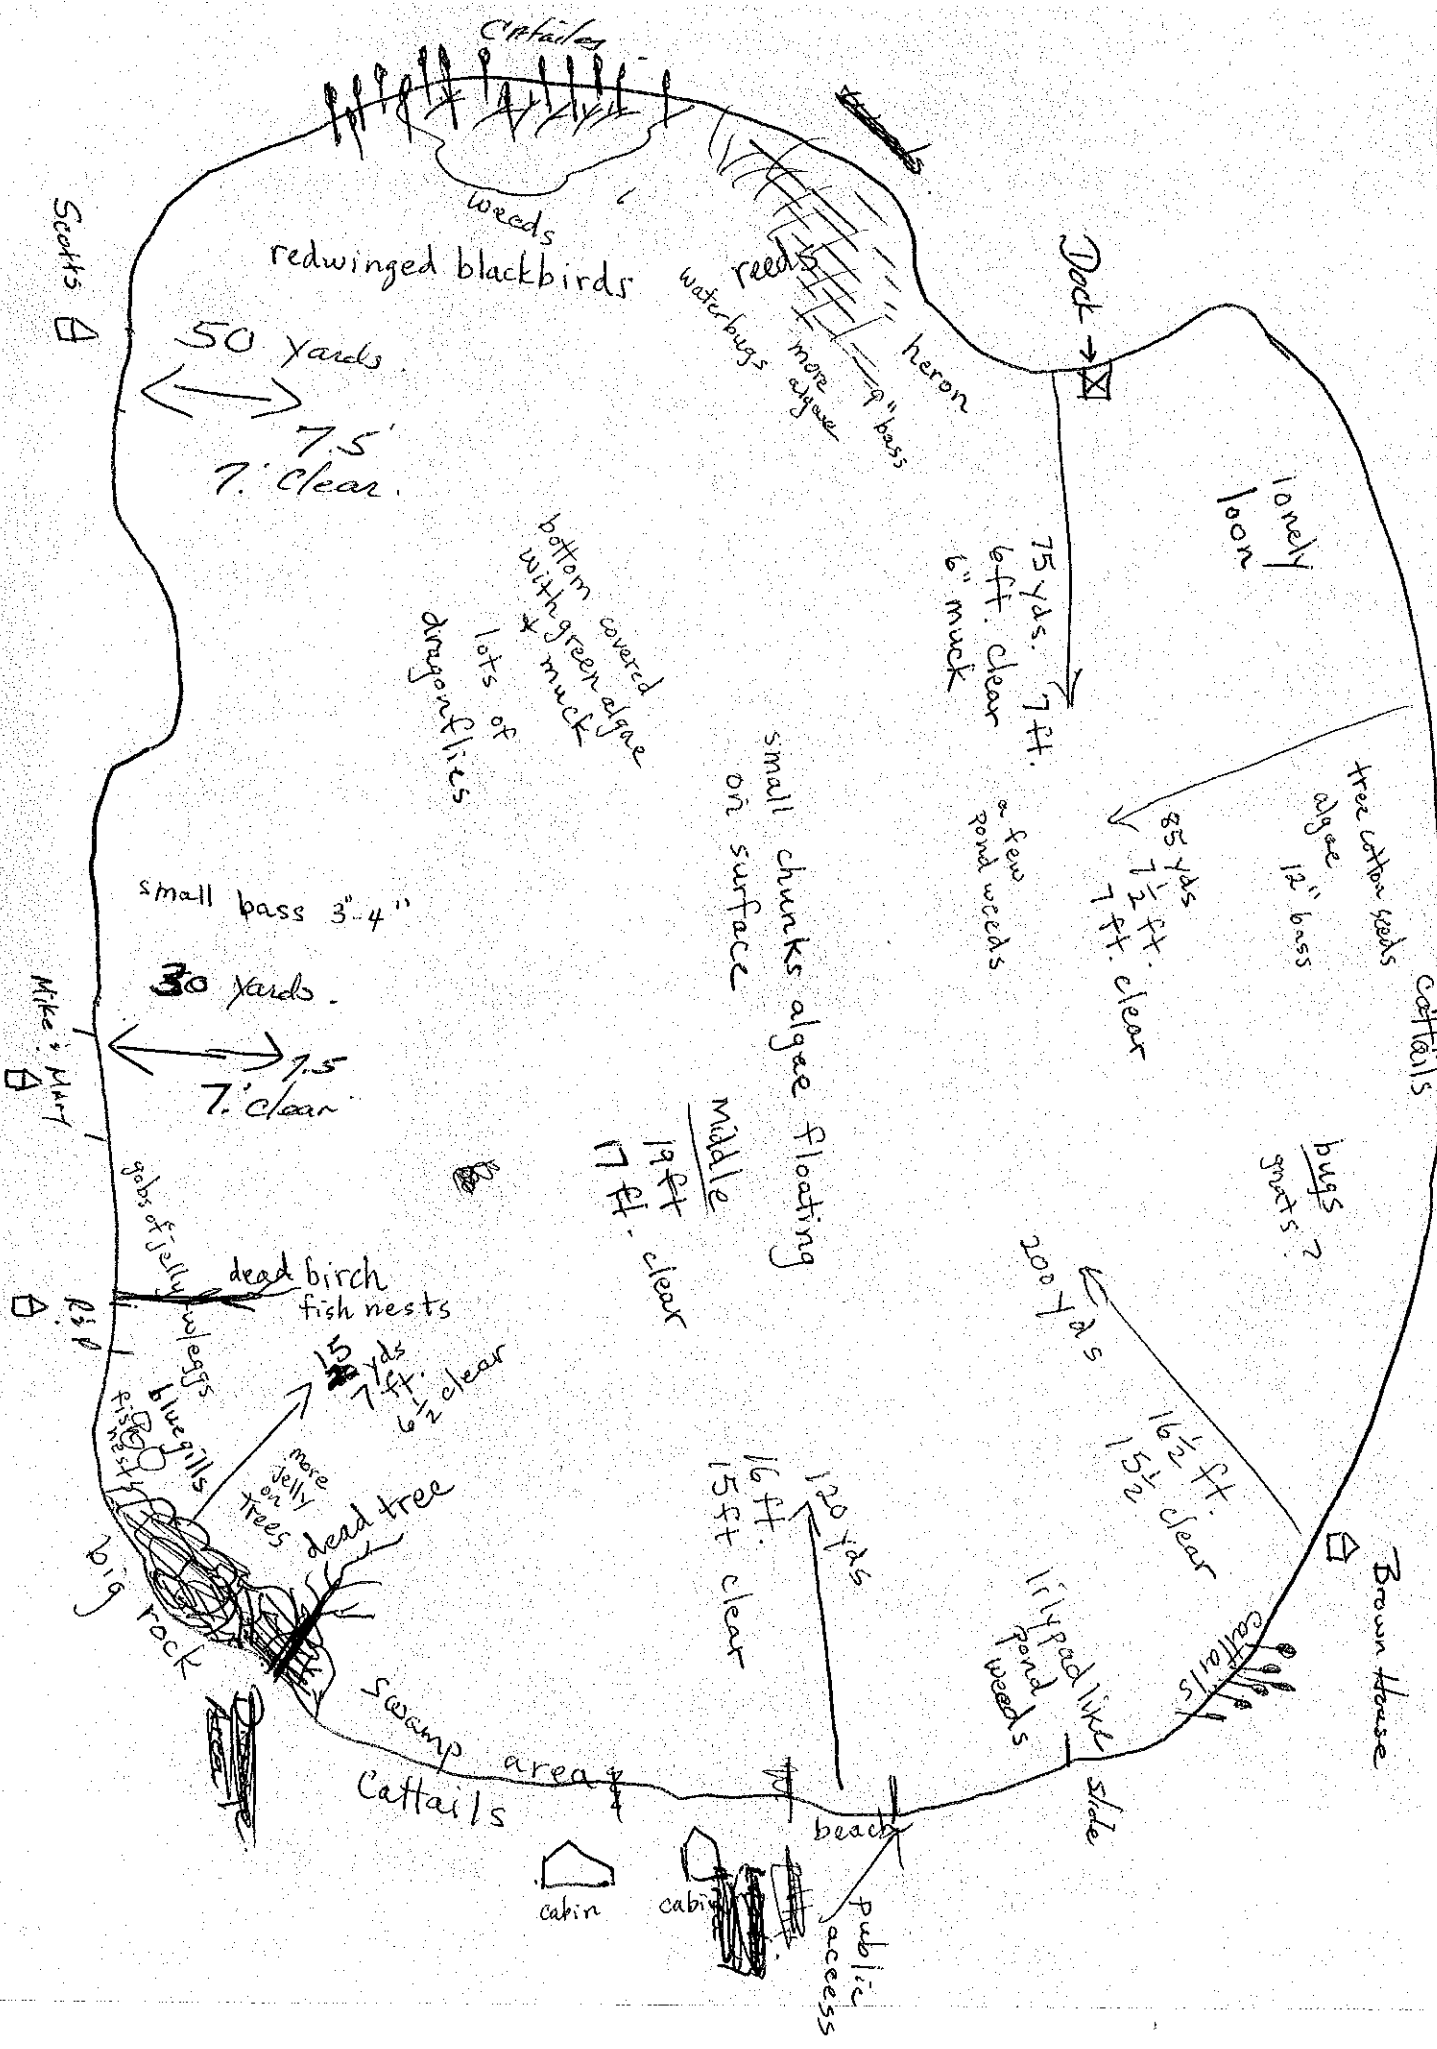 Cattails
weeds
redwinged blackbirds
reeds
waterbugs
more
algae
9" bass
heron
Dock →
Scotts
50 yards.
7.5'
7.' clear.
lonely
loon
75 yds. 7 ft.
6 ft. clear
6" muck
bottom covered
with green algae
+ muck
lots of
dragonflies
small chunks algae floating
on surface
a few
pond weeds
85 yds
7 1/2 ft.
7 ft. clear
tree cotton seeds
algae
12" bass
cattails
small bass 3"-4"
30 yards.
7.5
7.' clear
Mike & Mary
middle
19 ft
17 ft. clear
bugs
gnats?
200 yds
16 1/2 ft.
15 1/2 clear
Brown House
gobs of jelly w/eggs
dead birch
fish nests
R&P
15 yds
7 ft.
6 1/2 clear
bluegills
fish
nests
more
jelly
on
trees
dead tree
big rock
120 yds
16 ft.
15 ft clear
lilypad like
pond
weeds
cattails
swamp area
Cattails
slide
beach
public
access
cabin
cabin